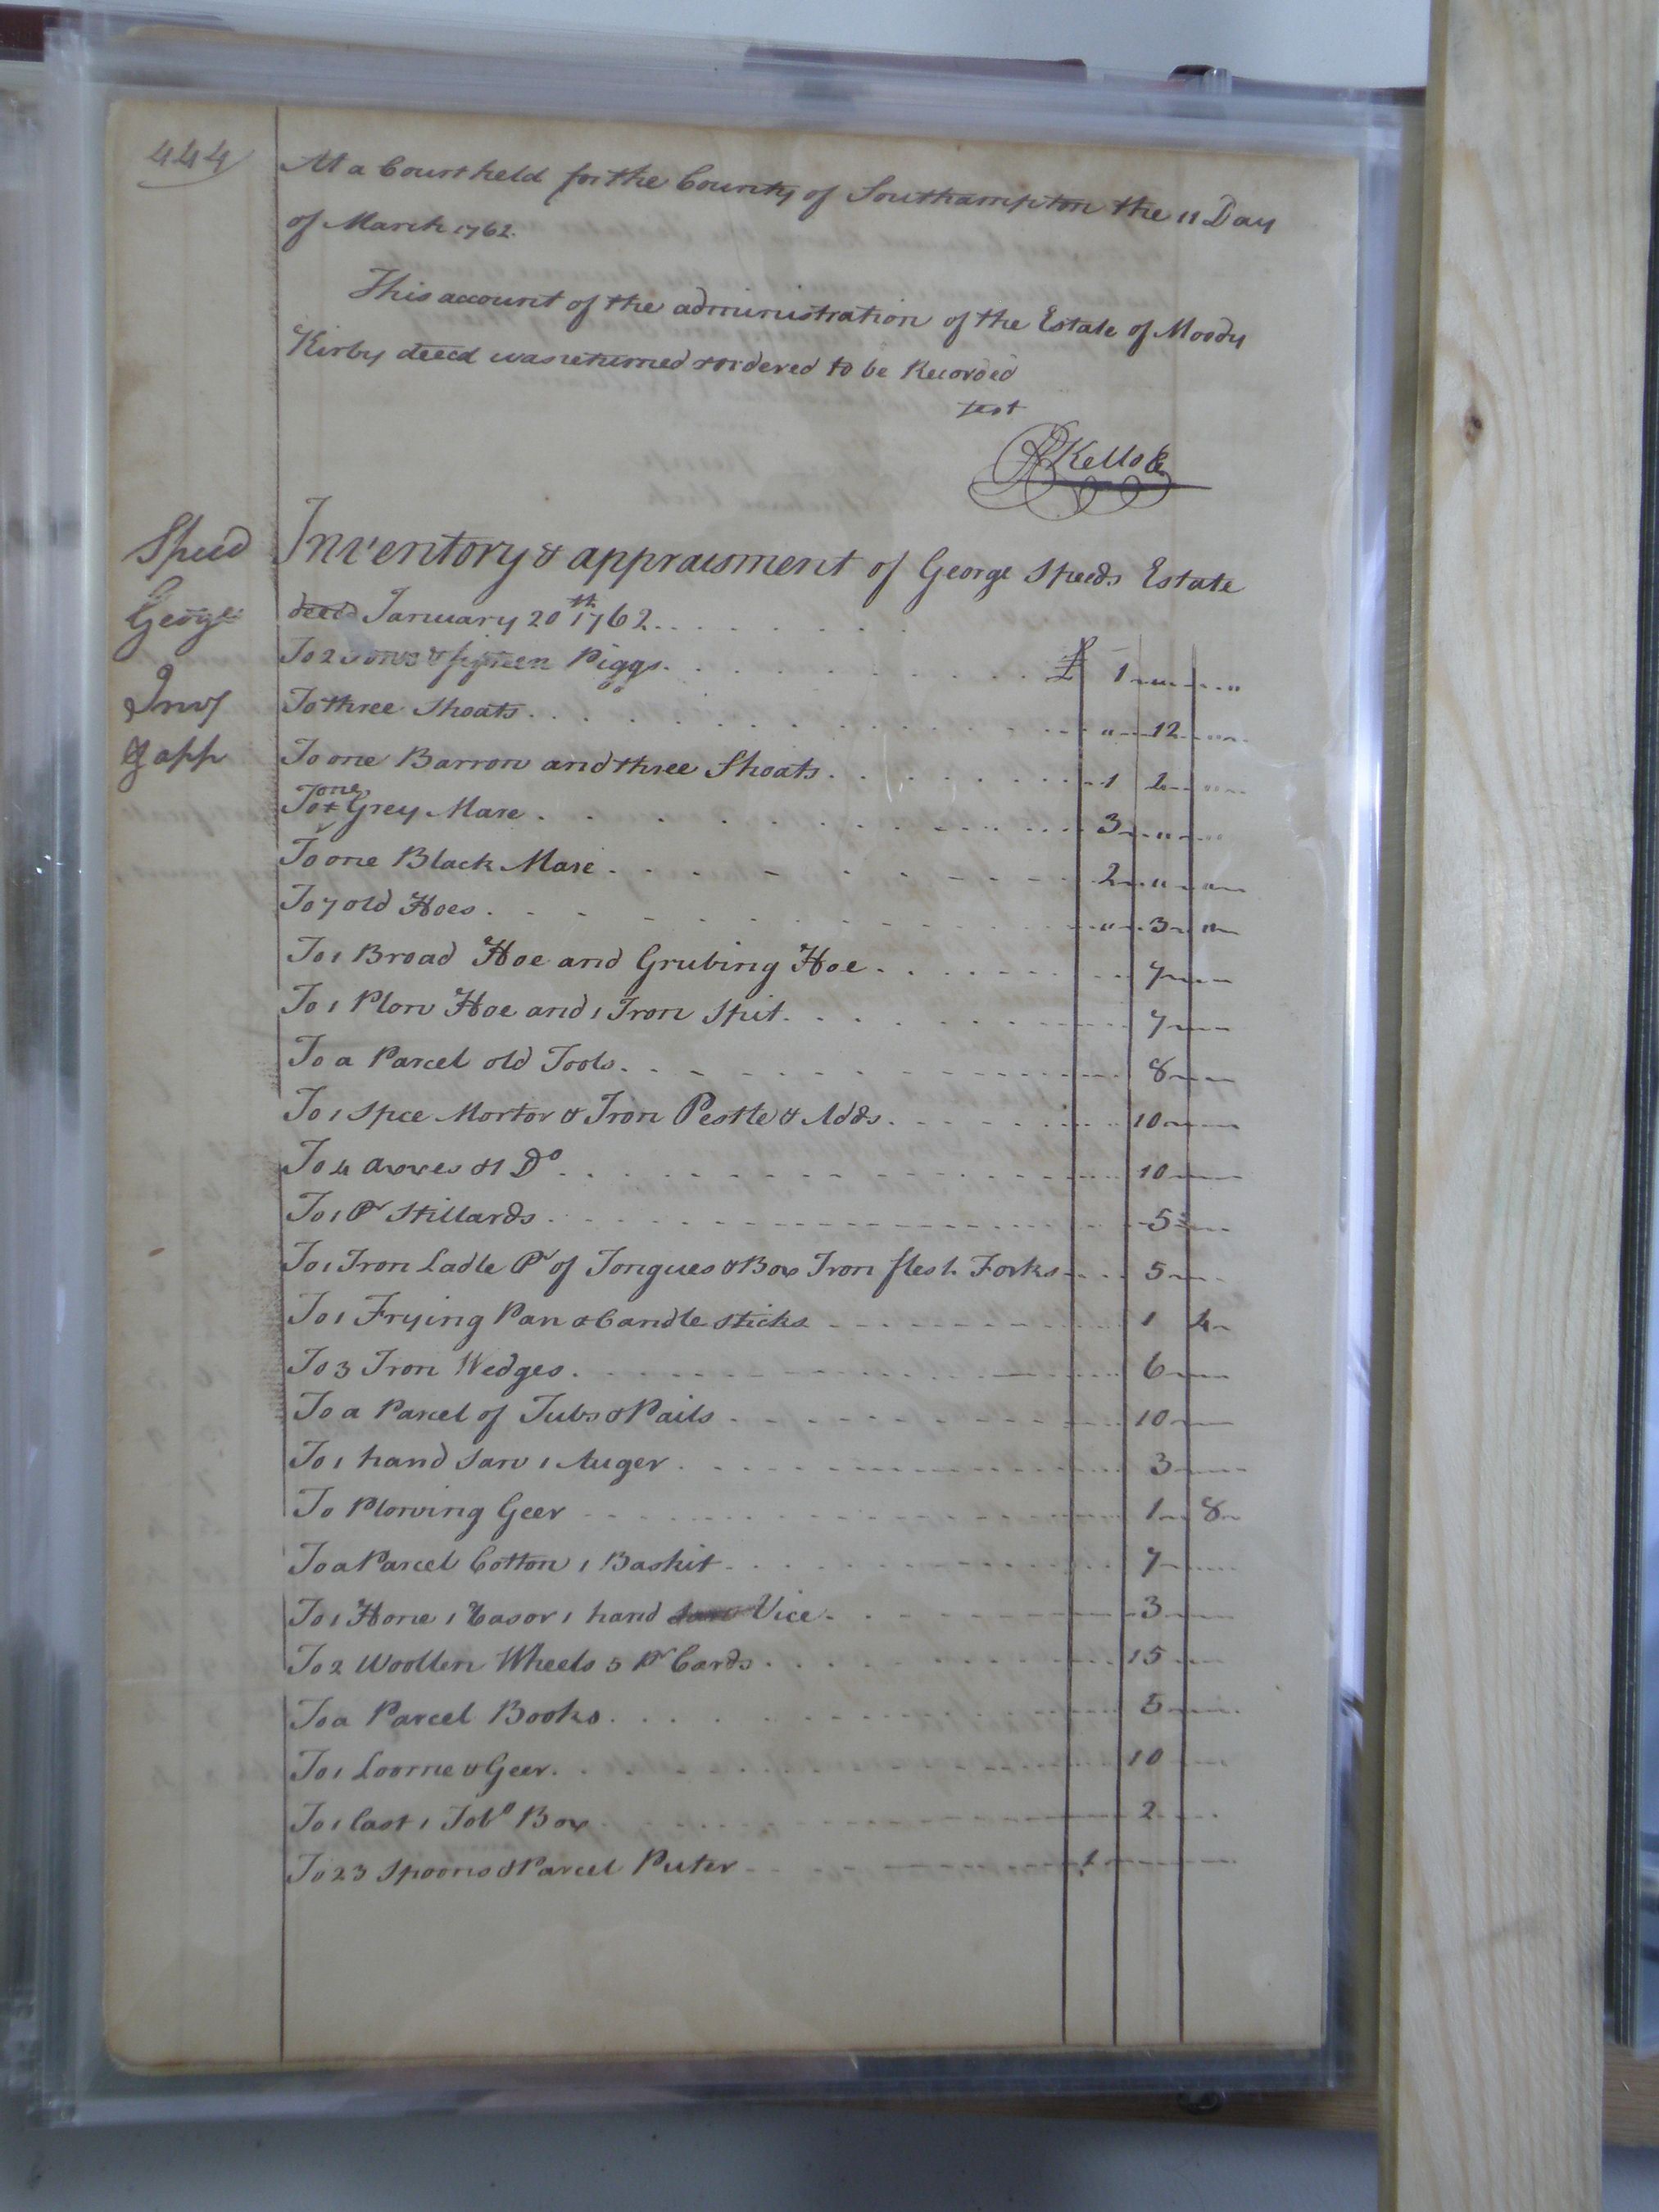 444
At a Court held for the County of Southampton the 11 Day
of March 1762.
This account of the administration of the Estate of Moody
Kirby decd was returned & ordered to be Recorded
test
RKello Ck
Speed
George
Inv
& app
Inventory & appraisment of George Speeds Estate
decd January 20th 1762
To 2 Sows & fifteen Piggs £ 1 " "
To three Shoats " 12 "
To one Barrow and three Shoats 1 2 "
To one Grey Mare 3 " "
To one Black Mare 2 " "
To 7 old Hoes " 3 "
To 1 Broad Hoe and Grubing Hoe 7
To 1 Plow Hoe and 1 Iron Spit 7
To a Parcel old Tools 8
To 1 Spce Mortor & Iron Pestle & Adds 10
To 4 axxes & 1 Do 10
To 1 Pr Stillards 5
To 1 Iron Ladle Pr of Tongues & Box Iron flesh Forks 5
To 1 Frying Pan & Candle sticks 1 4
To 3 Iron Wedges 6
To a Parcel of Tubs & Pails 10
To 1 hand Saw 1 Auger 3
To Plowing Geer 1 8
To a Parcel Cotton 1 Baskit 7
To 1 Hone 1 Rasor 1 hand Vice 3
To 2 Woollen Wheels 5 Pr Cards 15
To a Parcel Books 5
To 1 Loome & Geer 10
To 1 Cast 1 Tobo Box 2
To 23 Spoons & Parcel Puter 1